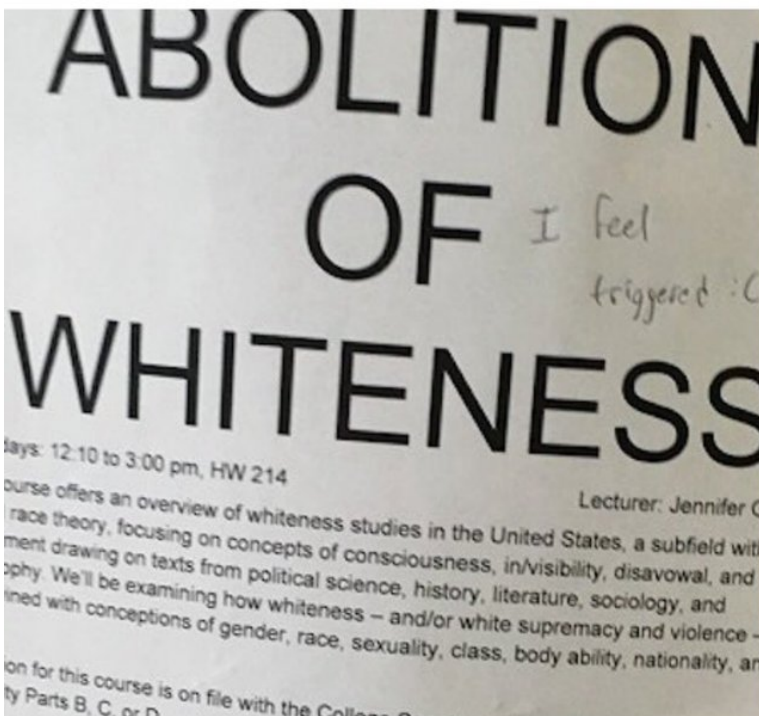 ABOLITION
OF
I feel
triggered :(
WHITENESS
days: 12:10 to 3:00 pm, HW 214
Lecturer: Jennifer
ourse offers an overview of whiteness studies in the United States, a subfield wit
race theory, focusing on concepts of consciousness, in/visibility, disavowal, and
ment drawing on texts from political science, history, literature, sociology, and
ophy. We'll be examining how whiteness – and/or white supremacy and violence –
ined with conceptions of gender, race, sexuality, class, body ability, nationality, an
ion for this course is on file with the College
ty Parts B, C, or D